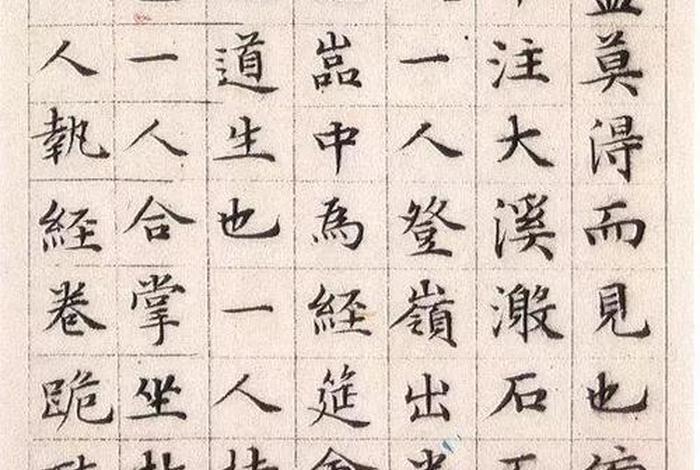 莫得而見也
注大溪潄石
一人登嶺出
嵓中為経筵
道生也一人
一人合掌坐
人執経巻跪